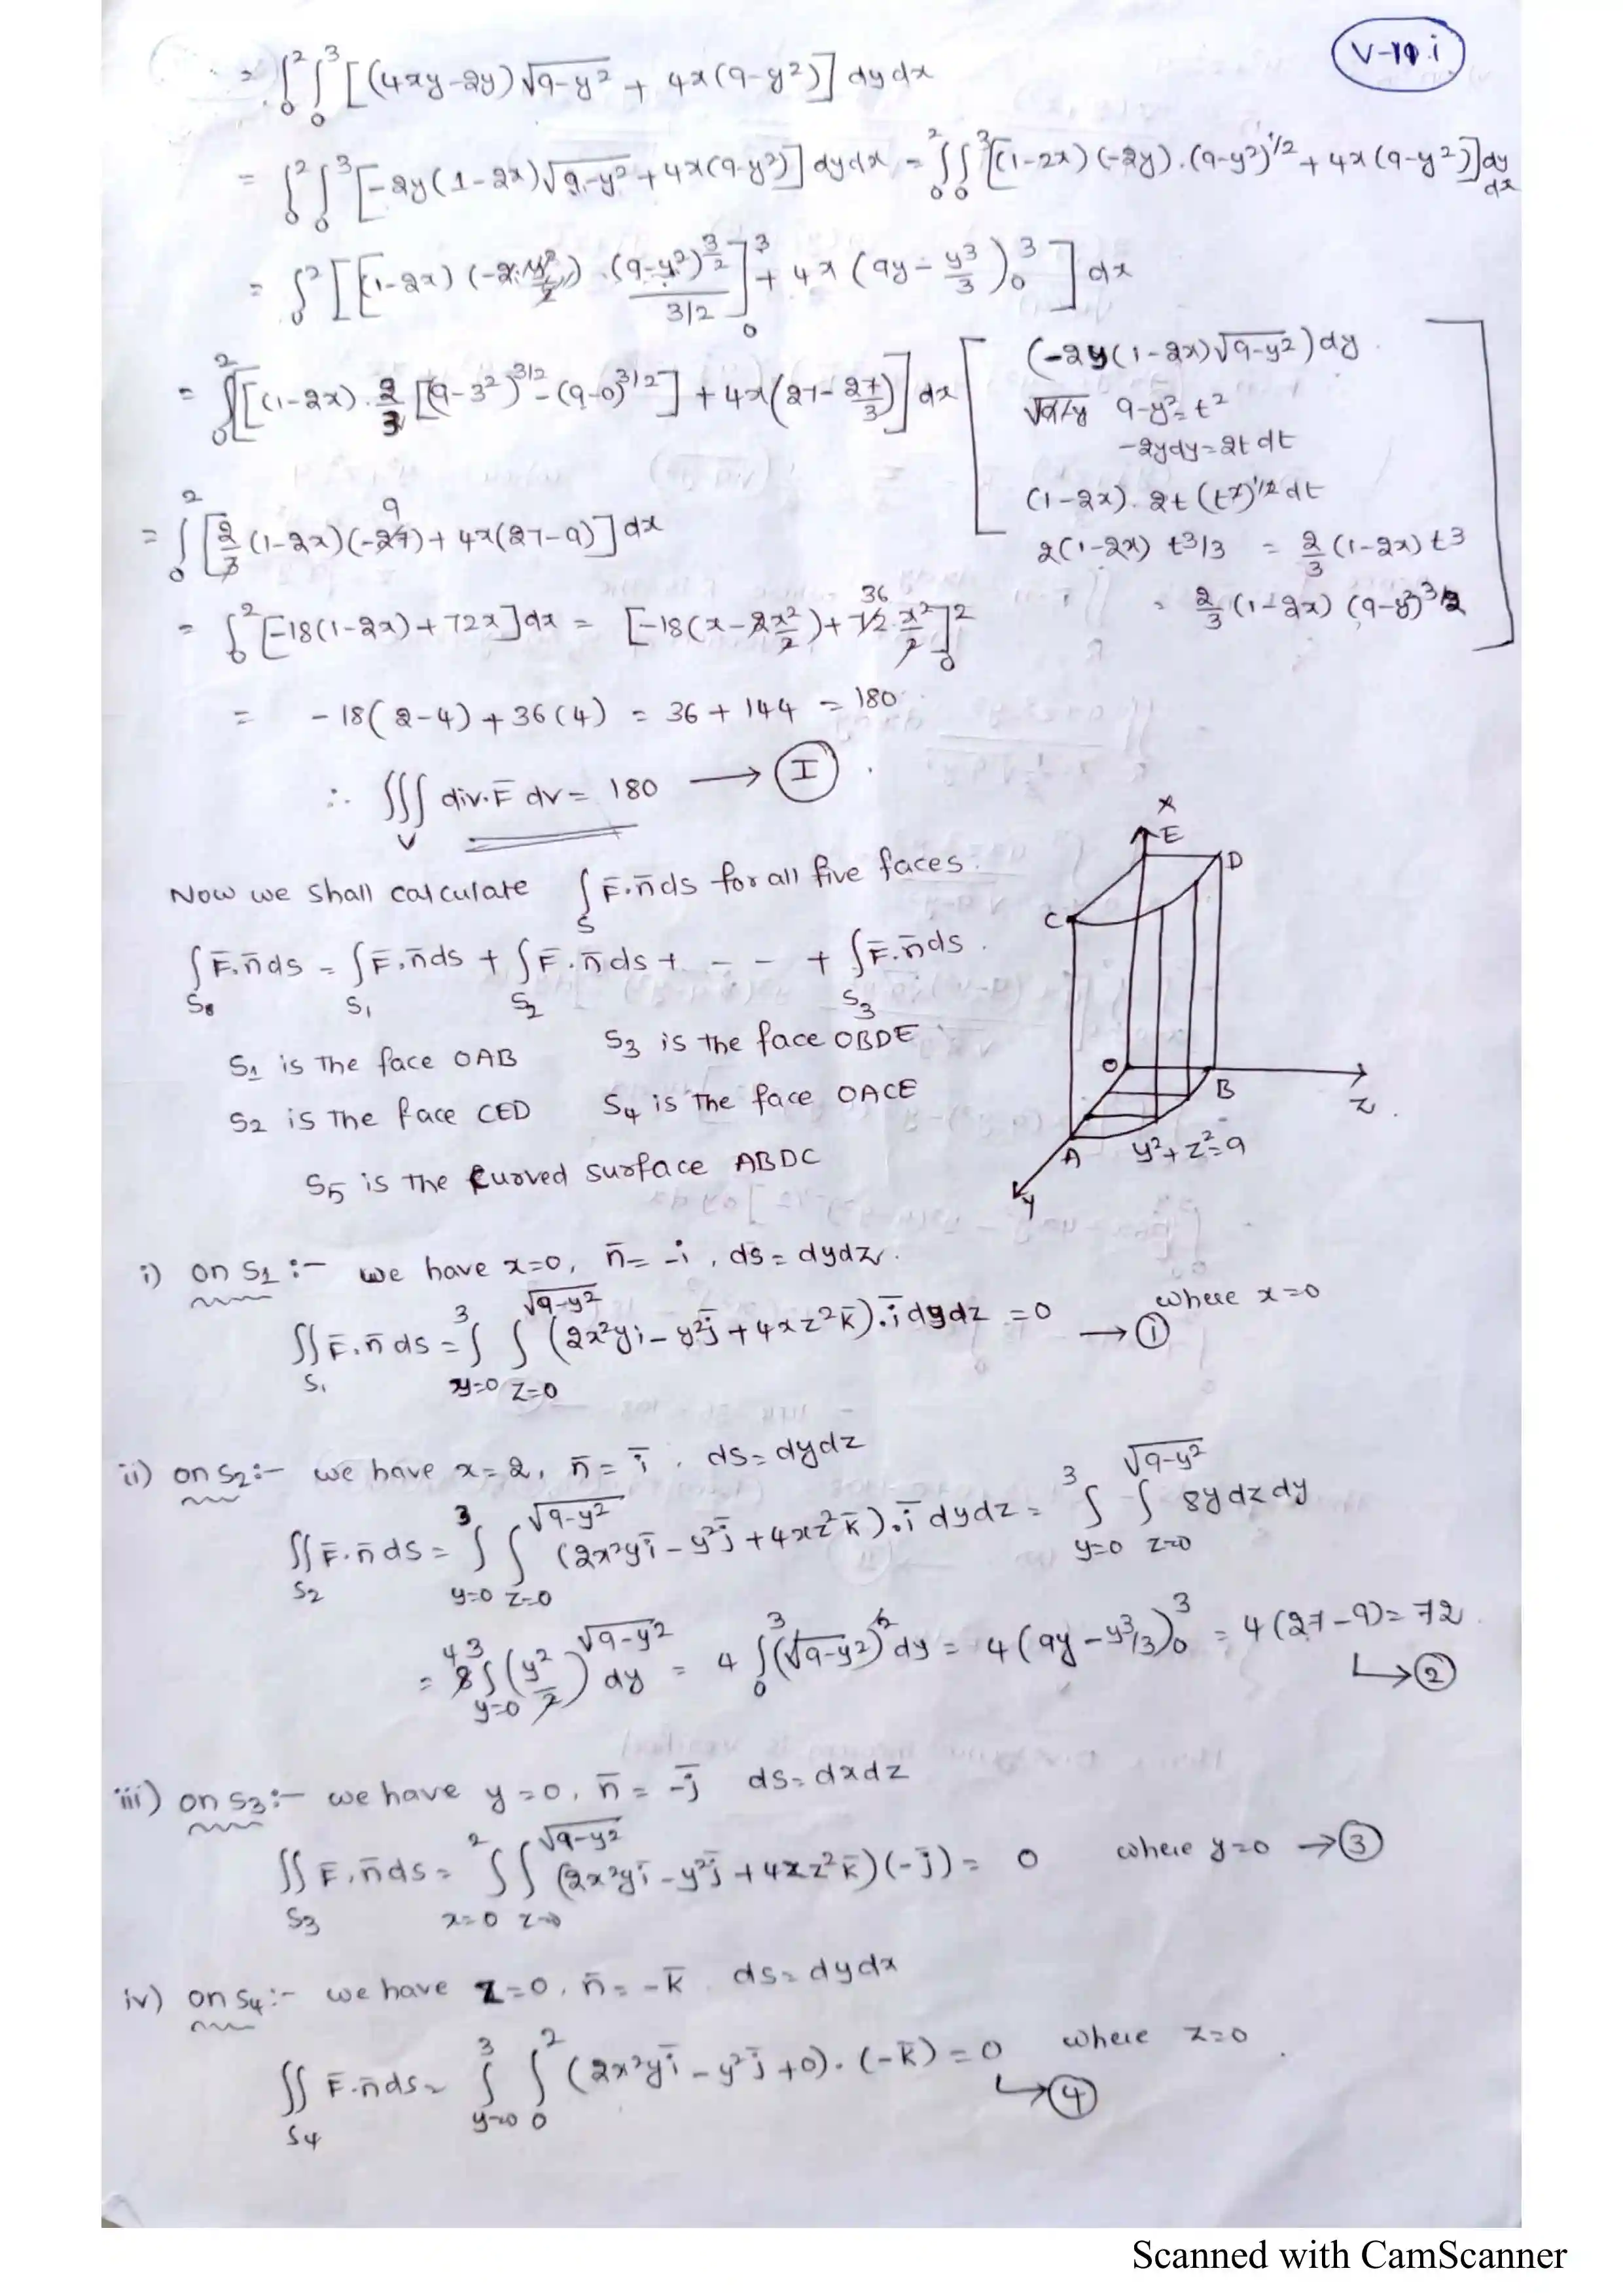 V-10.i
= ∫₀² ∫₀³ [(4xy-2y)√9-y² + 4x(9-y²)] dy dx
= ∫₀² ∫₀³ [-2y(1-2x)√9-y² + 4x(9-y²)] dy dx = ∫₀² ∫₀³ [(1-2x)(-2y).(9-y²)^1/2 + 4x(9-y²)] dy dx
= ∫₀² [[(1-2x) . (9-y²)^3/2 / 3/2]₀³ + 4x (9y - y³/3)₀³] dx
= ∫₀² [(1-2x).2/3 [(9-3²)^3/2 - (9-0)^3/2] + 4x(27 - 27/3)] dx
(-2y(1-2x)√9-y²) dy
9-y² = t²
-2ydy = 2t dt
(1-2x). 2t (t²)^1/2 dt
2(1-2x) t³/3 = 2/3 (1-2x) t³
= 2/3 (1-2x) (9-y²)^3/2
= ∫₀² [2/3 (1-2x)(-27) + 4x(27-9)] dx
9
= ∫₀² [-18(1-2x) + 72x] dx = [-18(x - 2x²/2) + 72 x²/2]₀²
36
= -18(2-4) + 36(4) = 36 + 144 = 180
∴ ∭_V div.F̄ dv = 180 ⟶ Ⓘ
Now we shall calculate ∫_S F̄.n̄ ds for all five faces.
∫_S F̄.n̄ ds = ∫_S₁ F̄.n̄ ds + ∫_S₂ F̄.n̄ ds + - - - + ∫_S₃ F̄.n̄ ds.
S₁ is the face OAB S₃ is the face OBDE
S₂ is the face CED S₄ is the face OACE
S₅ is the curved surface ABDC
X
E
D
C
O
B
Z
A
y²+z²=9
Y
i) on S₁:- we have x=0, n̄ = -i, ds = dydz.
∬_S₁ F̄.n̄ ds = ∫_{y=0}^3 ∫_{z=0}^{√9-y²} (2x²yi - y²j̄ + 4xz²k̄).ī dydz = 0 where x=0 ⟶ ①
ii) on S₂:- we have x=2, n̄ = ī, ds = dydz
∬_S₂ F̄.n̄ ds = ∫_{y=0}^3 ∫_{z=0}^{√9-y²} (2x²yī - y²j̄ + 4xz²k̄).ī dydz = ∫_{y=0}^3 ∫_{z=0}^{√9-y²} 8y dz dy
= 8 ∫_{y=0}^3 (y²/2)^{√9-y²} dy = 4 ∫₀³ (√9-y²)² dy = 4(9y - y³/3)₀³ = 4(27-9) = 72
4
↳ ②
iii) on S₃:- we have y=0, n̄ = -j̄ ds = dxdz
∬_S₃ F̄.n̄ ds = ∫_{x=0}^2 ∫_{z=0}^{√9-y²} (2x²yī - y²j̄ + 4xz²k̄)(-j̄) = 0 where y=0 → ③
iv) on S₄:- we have z=0, n̄ = -k̄. ds = dydx
∬_S₄ F̄.n̄ ds = ∫_{y=0}^3 ∫_0^2 (2x²yī - y²j̄ + 0).(-k̄) = 0 where z=0.
↳ ④
Scanned with CamScanner